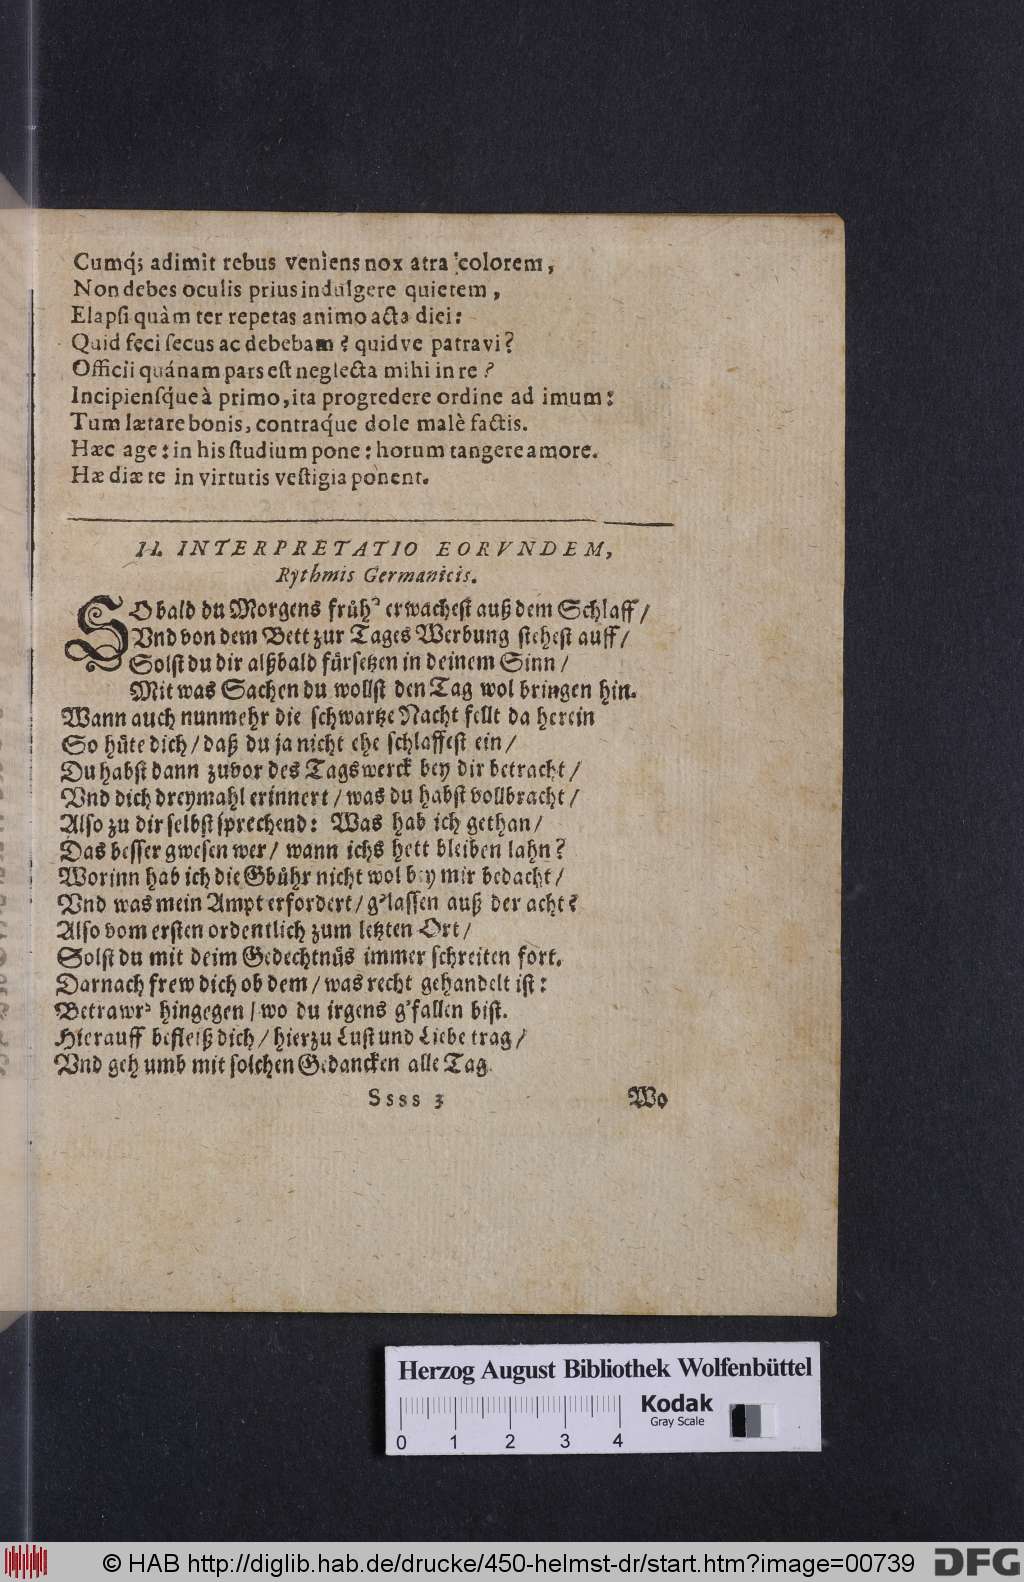 Cumq́; adimit rebus veniens nox atra colorem,
Non debes oculis prius indulgere quietem,
Elapsi quàm ter repetas animo acta diei:
Quid feci secus ac debebam? quidve patravi?
Officii quánam pars est neglecta mihi in re?
Incipiensq́ue à primo, ita progredere ordine ad imum:
Tum lætare bonis, contraq́ue dole malè factis.
Hæc age: in his studium pone: horum tangere amore.
Hæ diæ te in virtutis vestigia ponent.
II. INTERPRETATIO EORVNDEM,
Rythmis Germanicis.
SObald du Morgens früh' erwachest auß dem Schlaff/
Vnd von dem Bett zur Tages Werbung stehest auff/
Solst du dir alßbald fürsetzen in deinem Sinn/
Mit was Sachen du wollst den Tag wol bringen hin.
Wann auch nunmehr die schwartze Nacht fellt da herein
So hüte dich/ daß du ja nicht ehe schlaffest ein/
Du habst dann zuvor des Tagswerck bey dir betracht/
Vnd dich dreymahl erinnert/ was du habst vollbracht/
Also zu dir selbst sprechend: Was hab ich gethan/
Das besser gwesen wer/ wann ichs hett bleiben lahn?
Worinn hab ich die Gbühr nicht wol bey mir bedacht/
Vnd was mein Ampt erfordert/ g'lassen auß der acht?
Also vom ersten ordentlich zum letzten Ort/
Solst du mit deim Gedechtnüs immer schreiten fort.
Darnach frew dich ob dem/ was recht gehandelt ist:
Betrawr' hingegen/ wo du irgens g'fallen bist.
Hierauff befleiß dich/ hierzu Lust und Liebe trag/
Vnd geh umb mit solchen Gedancken alle Tag.
Ssss 3 Wo
Herzog August Bibliothek Wolfenbüttel
Kodak
Gray Scale
0 1 2 3 4
© HAB http://diglib.hab.de/drucke/450-helmst-dr/start.htm?image=00739 DFG